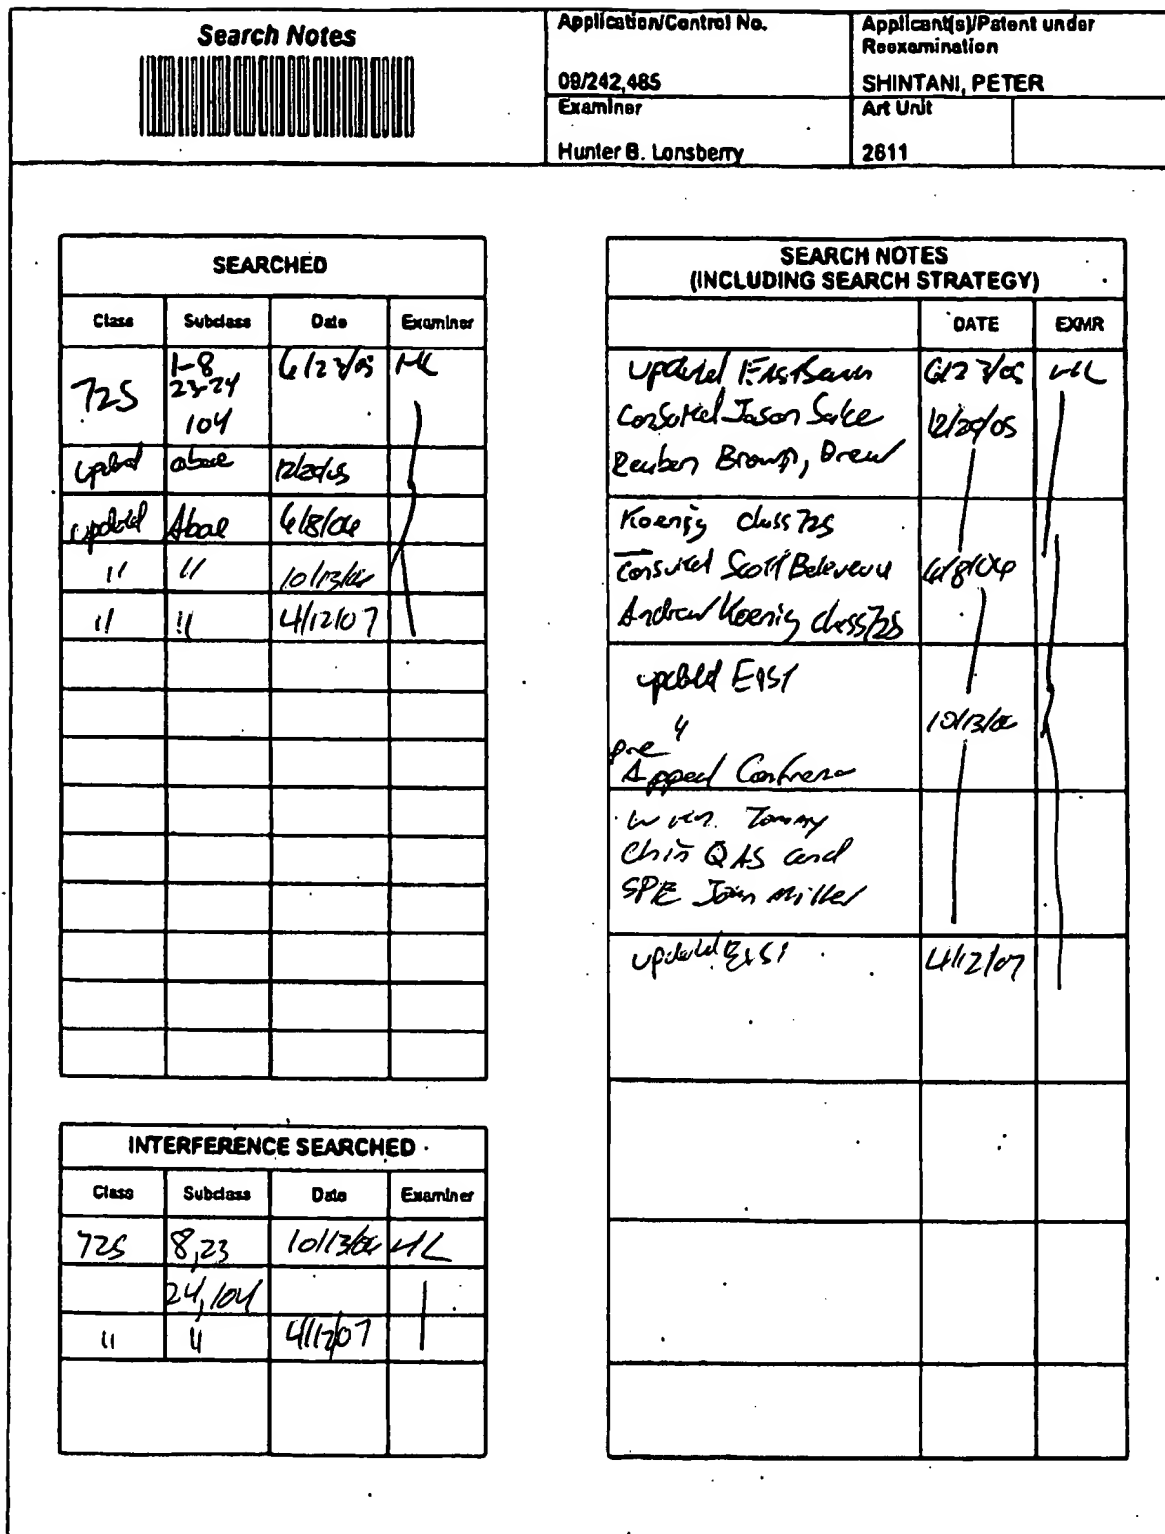 Search Notes
Application/Control No.
Applicant(s)/Patent under
Reexamination
09/242,485
SHINTANI, PETER
Examiner
Art Unit
Hunter B. Lonsberry
2611
SEARCHED
Class Subclass Date Examiner
725 1-8 6/23/05 HL
23-24
104
updated above 12/20/05
updated Above 6/8/06
" " 10/13/06
" " 4/12/07
INTERFERENCE SEARCHED
Class Subclass Date Examiner
725 8,23 10/13/06 HL
24,104
" " 4/12/07
SEARCH NOTES
(INCLUDING SEARCH STRATEGY)
DATE EXMR
updated EAST Search 6/23/05 HL
Consulted Jason 12/20/05
Reuben Brown, Drew
Koenig class 725
Consulted Scott Beliveau 6/8/06
Andrew Koenig class 725
updated EAST
" 10/13/06
pre
Appeal Conference
with Tommy
Chin QAS and
SPE John Miller
updated EAST 4/12/07